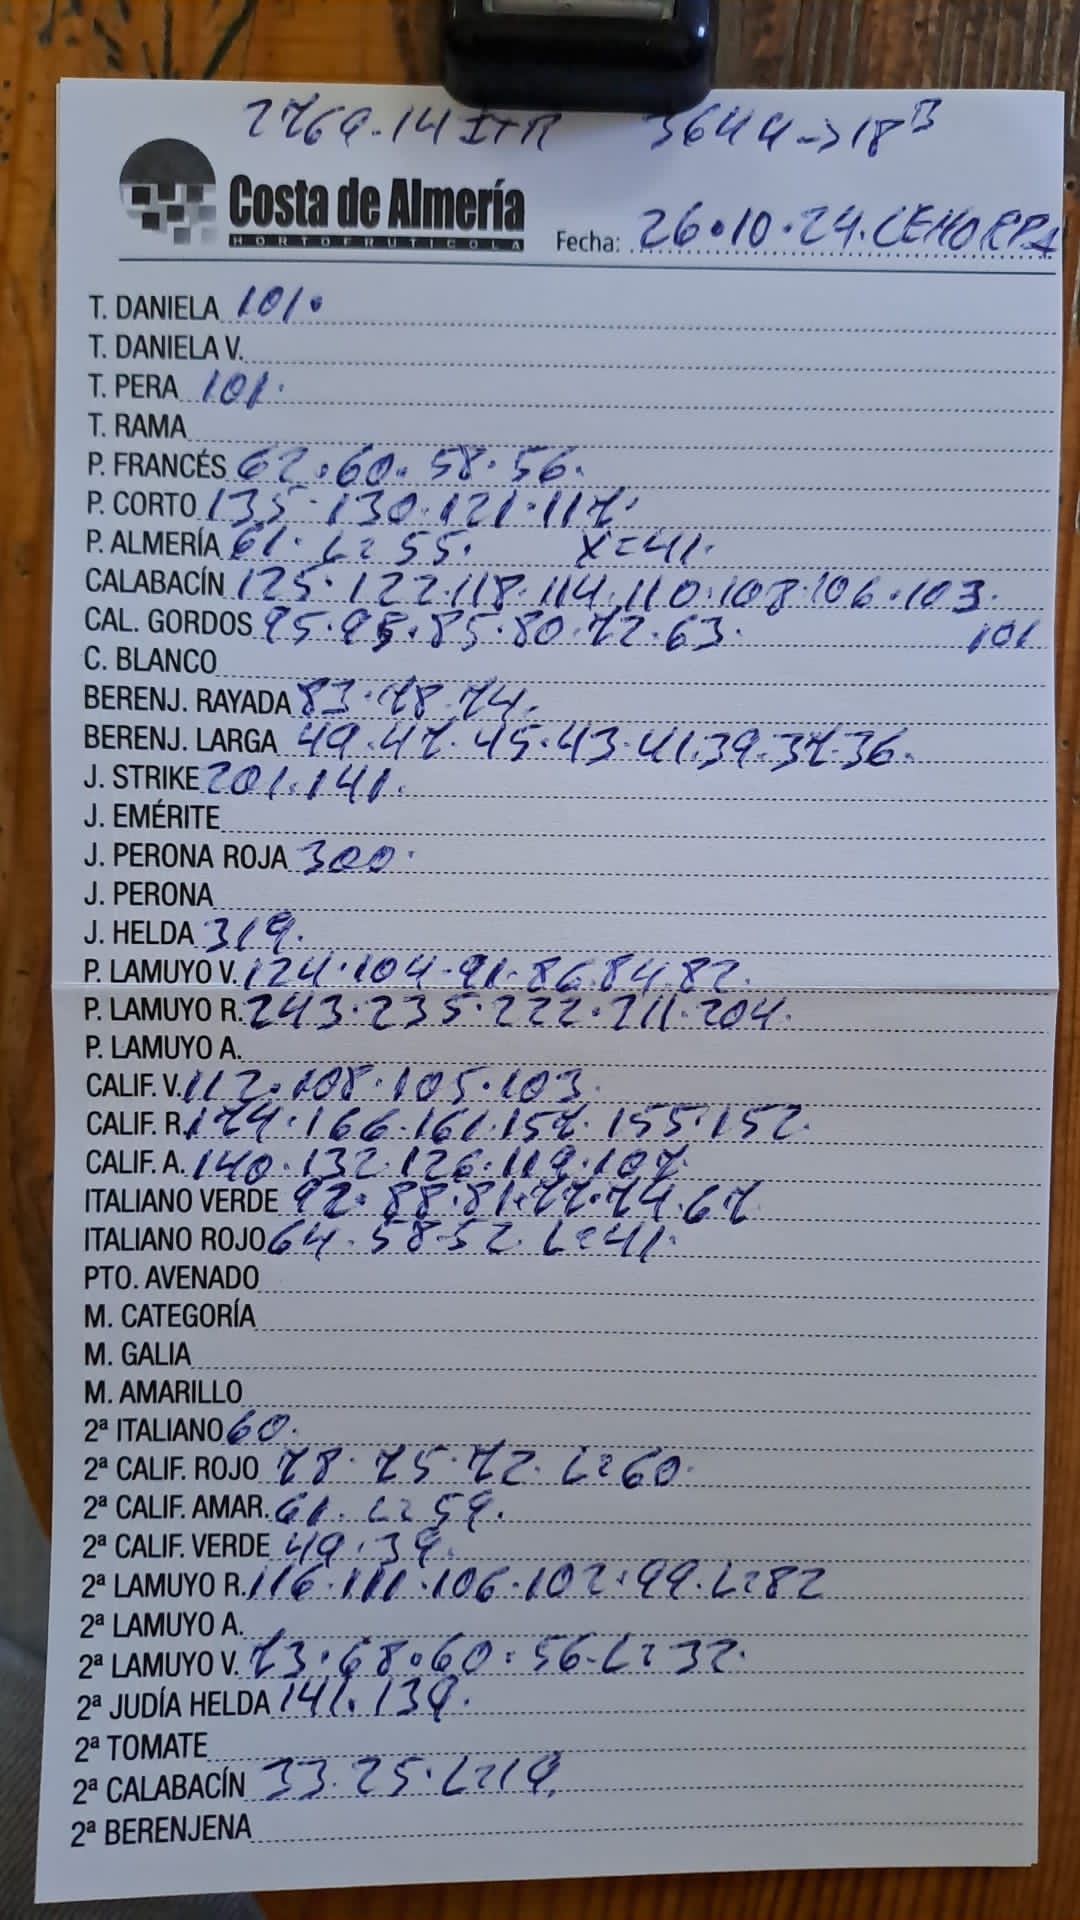 2769-14 ITA 3644->18B
Costa de Almería
HORTOFRUTICOLA
Fecha: 26.10.24.
T. DANIELA 101.
T. DANIELA V.
T. PERA 101.
T. RAMA
P. FRANCÉS 62.60.58.56.
P. CORTO 135.130.121.117.
P. ALMERÍA 61. L=55. X=41.
CALABACÍN 125.122.118.114.110.108.106.103.
101
CAL. GORDOS 95.95.85.80.72.63.
C. BLANCO
BERENJ. RAYADA 83.78.74.
BERENJ. LARGA 49.47.45.43.41.39.37.36.
J. STRIKE 201.141.
J. EMÉRITE
J. PERONA ROJA 300.
J. PERONA
J. HELDA 319.
P. LAMUYO V. 124.104.91.86.84.82.
P. LAMUYO R. 243.235.222.211.204.
P. LAMUYO A.
CALIF. V. 112.108.105.103.
CALIF. R. 174.166.161.157.155.152.
CALIF. A. 140.132.126.119.107.
ITALIANO VERDE 92.88.81.77.74.67
ITALIANO ROJO 64.58.52. L=41.
PTO. AVENADO
M. CATEGORÍA
M. GALIA
M. AMARILLO
2ª ITALIANO 60.
2ª CALIF. ROJO 78.75.72. L=60.
2ª CALIF. AMAR. 61. L=59.
2ª CALIF. VERDE 49.39.
2ª LAMUYO R. 116.111.106.102.99. L=82
2ª LAMUYO A.
2ª LAMUYO V. 73.68.60.56. L=32.
2ª JUDÍA HELDA 141.139.
2ª TOMATE
2ª CALABACÍN 33.25. L=19.
2ª BERENJENA